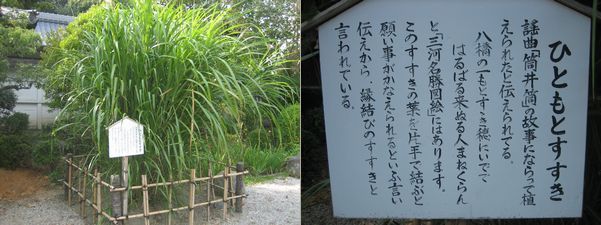 ひともとすすき
謡曲「筒井筒」の故事にならって植
えられたと伝えられてる。
八橋の「もとすゝき穂にいでて
はるばる来ぬる人まねくらん
と「三河名勝図絵」にはあります。
このすすきの葉を片手で結ぶと
願い事がかなえられるという言い
伝えから、縁結びのすすきと
言われている。